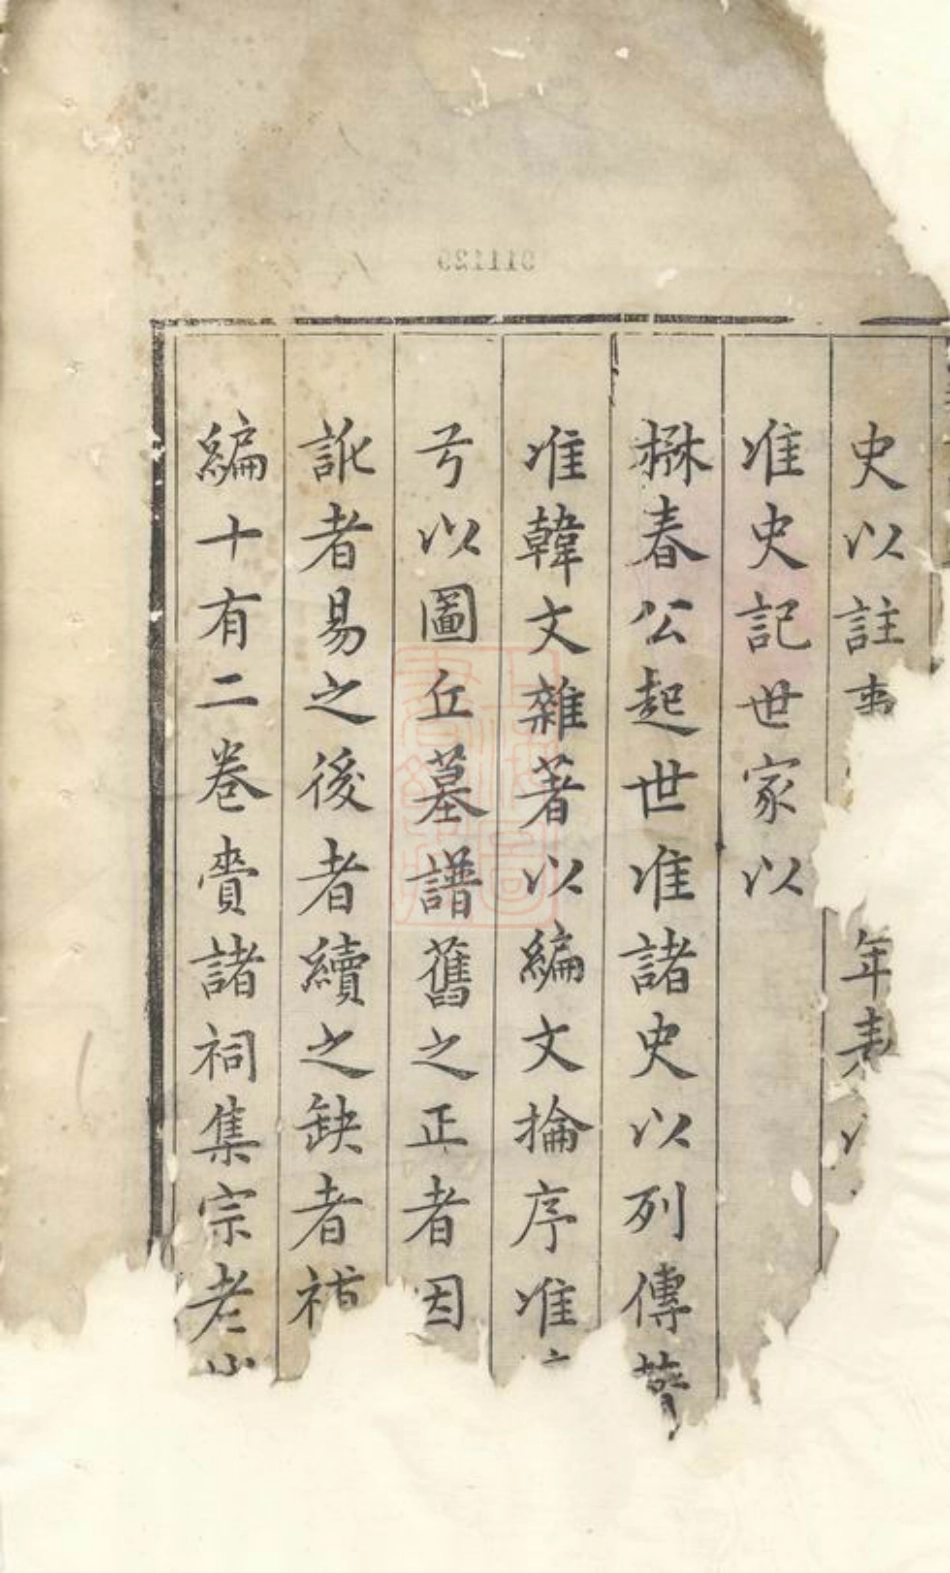 史以註事年表以
准史記世家以
楙春公起世准諸史以列傳
准韓文雜著以編文掄序准
亏以圖丘墓譜舊之正者因
訛者易之後者續之缺者補
編十有二卷賫諸祠集宗老